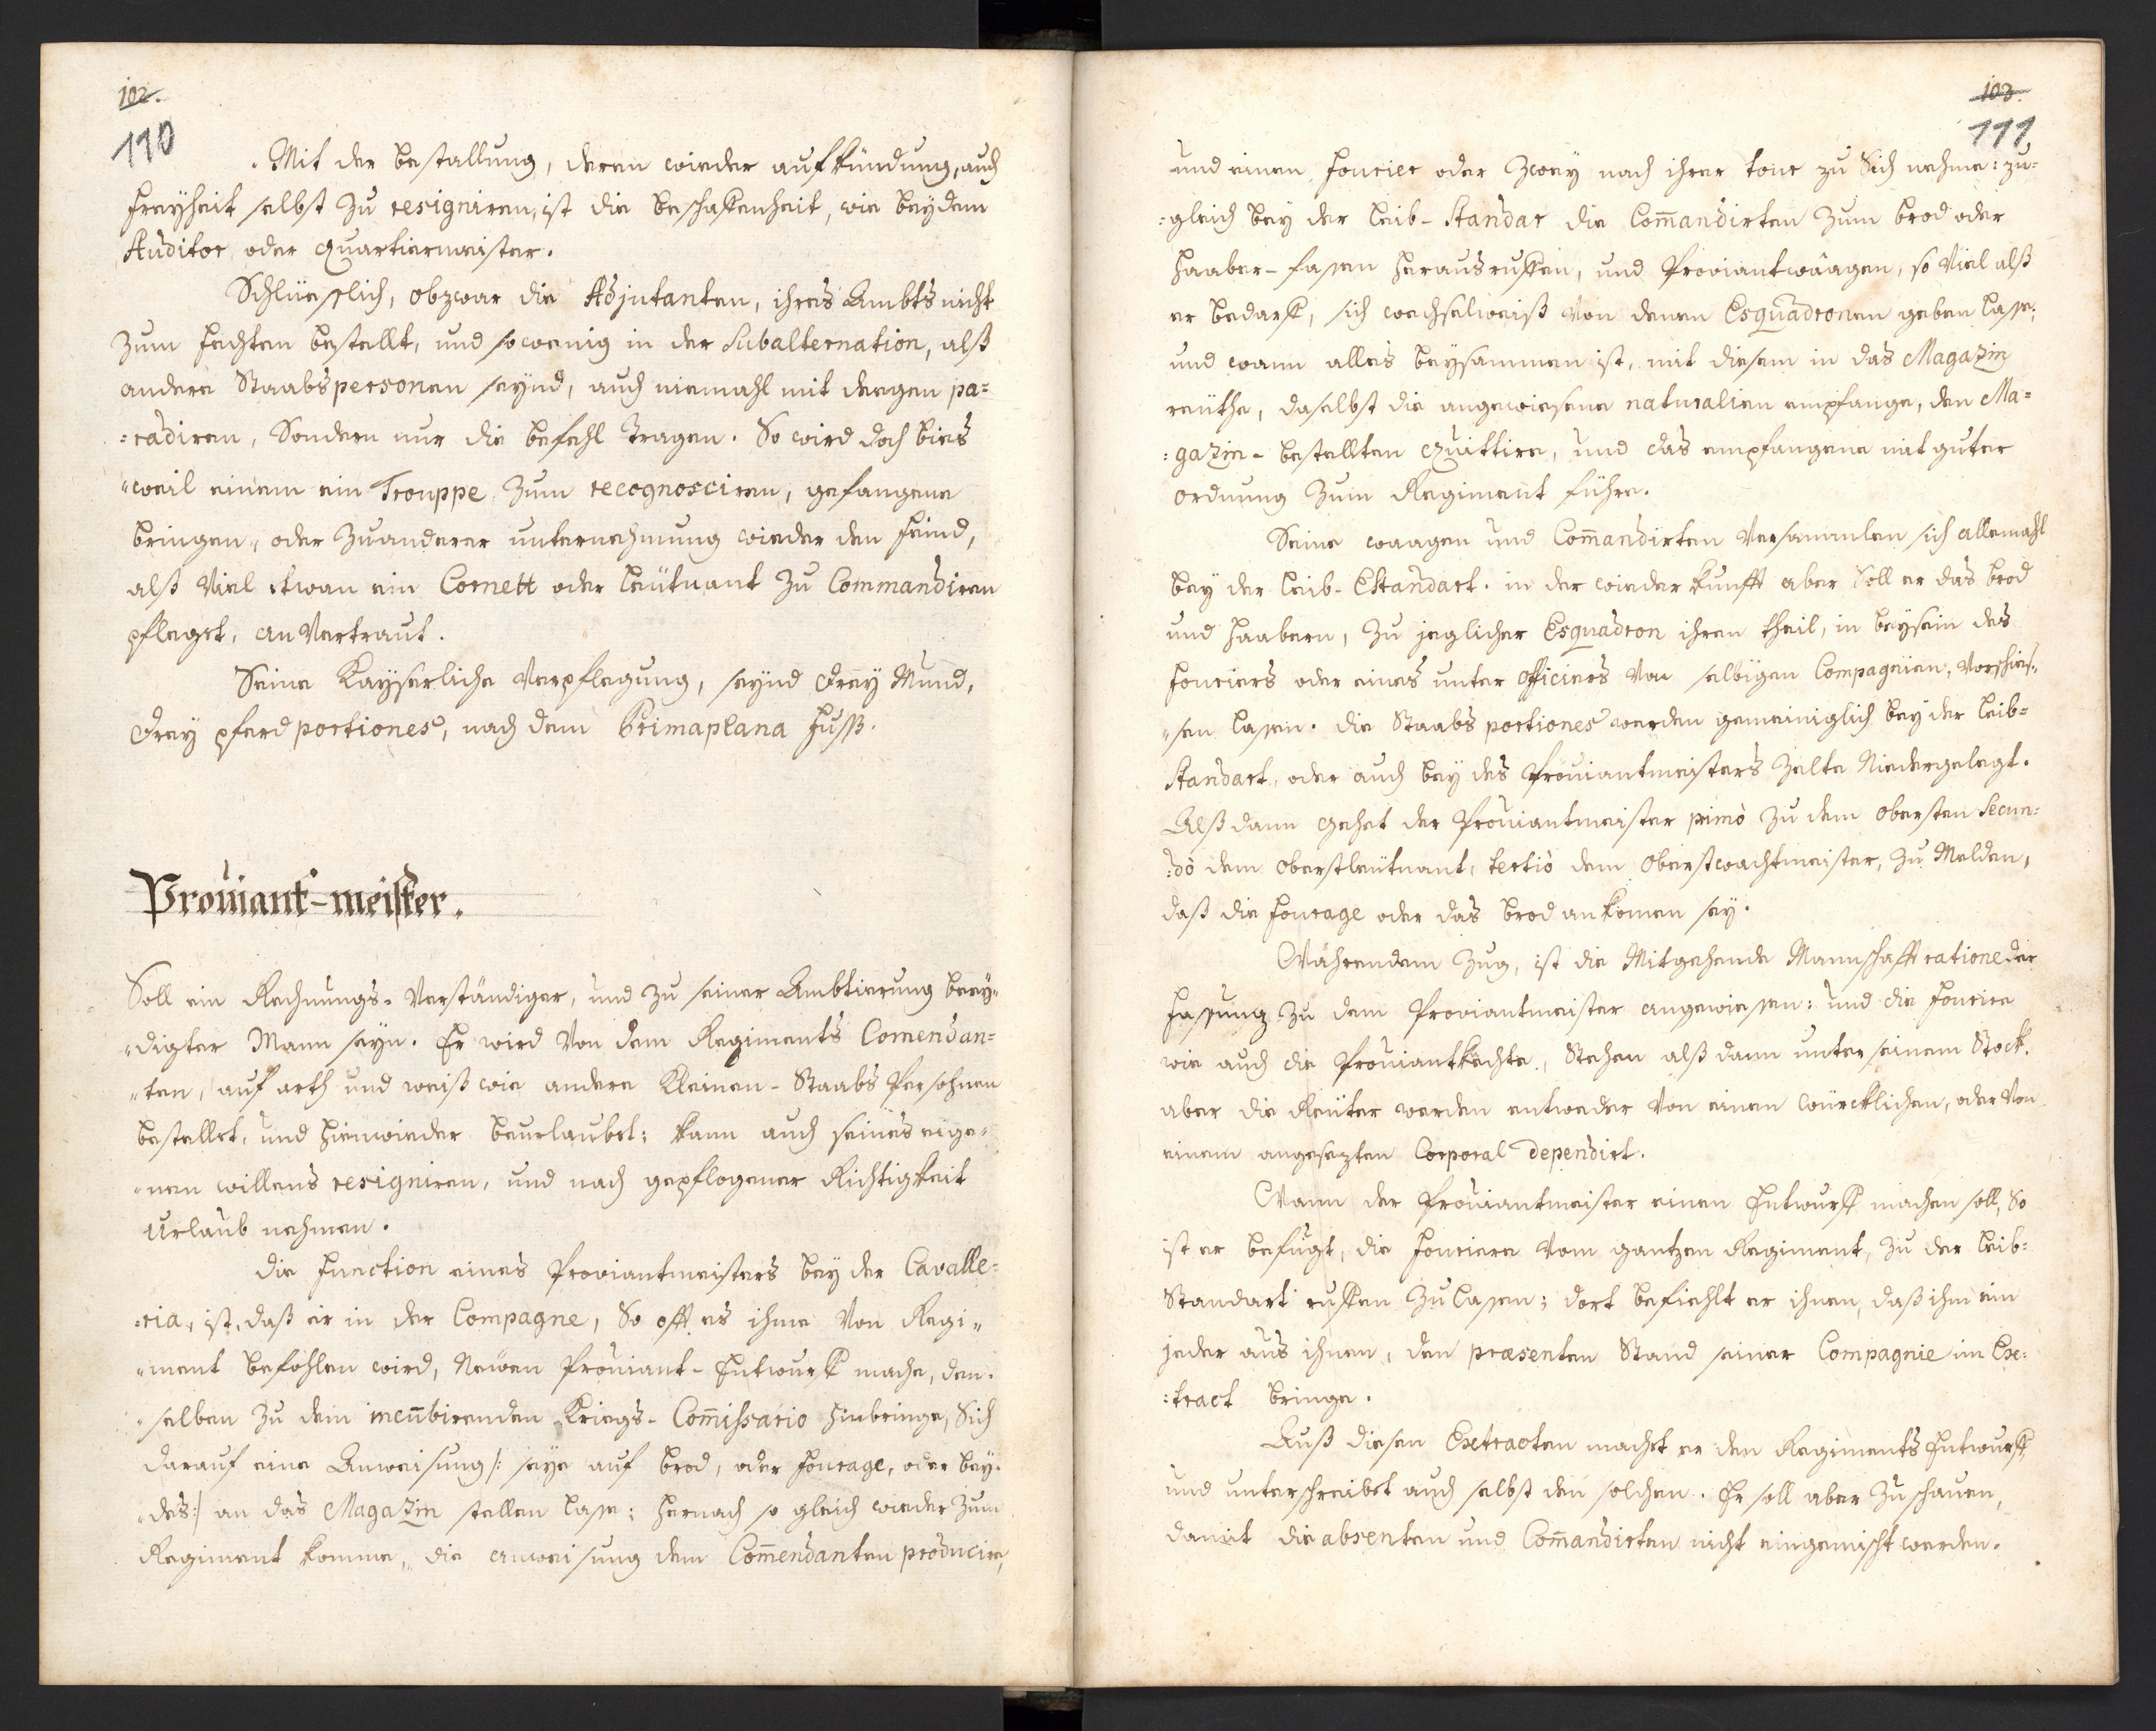 102.
110
Mit der bestallung, deren wieder aufkündung, auch
freyheit selbst zu resigniren, ist die beschaffenheit, wie bey dem
Auditor oder quartiermeister.
Schlüesslich, obzwar die Adjutanten, ihres Ambts nicht
zum fechten bestellt, und so wenig in der Subalternation, alß
andere Staabspersonen seynd, auch niemahl mit deegen pa=
=radiren, Sondern nur die befehl tragen. So wird doch bies
"weil einem ein Trouppe zum recognosciren, gefangene
bringen, oder zu anderer unternehmung wieder den feind,
alß viel etwan ein Cornett oder leütnant zu Commandiren
pfleget, an vertraut.
Seine Kayserliche Verpflegung, seynd drey Mund,
drey pferd portiones, nach dem Primaplana fuß.
Proviant-meister.
Soll ein Rechnungs-verständiger, und zu seiner Ambtierung beey"
"digter Mann seyn. Er wird von dem Regiments Comendan=
"ten, auf arth und weiß wie andere Kleinen-Staabs Persohnen
bestellet, und hinwieder beurlaubet; kann auch seines eige"
"nen willens resigniren, und nach gepflogener Richtigkeit
Urlaub nehmen.
die function eines Proviantmeisters bey der Cavalle=
=ria, ist, daß er in der Compagne, So offt es ihme von Regi"
"ment befohlen wird, Neüen Proviant-Entwurff mache, den"
"selben zu dem incumbirenden Kriegs-Com̄issario hinbringe, Sich
darauf eine Anweisung /: seye auf brod, oder fourage, oder bey"
"des :/ an das Magazin stellen lasse; hernach so gleich wieder zum
Regiment komme, die anweisung dem Com̄endanten producire,
103.
111
und einen fourier oder zwey nach ihrer tour zu Sich nehme: zu=
=gleich bey der leib-Standar die Com̄andirten zum brod oder
haaber-fassen herausruffen, und Proviantwäagen, so viel alß
er bedarff, sich wechselweiß von denen Esquadronen geben lasse;
und wann alles beysammen ist, mit diesem in das Magazin
reüthe, daselbst die angewiesene naturalien empfange, den Ma=
=gazin-bestellten quittire, und das empfangene mit guter
ordnung zum Regiment führe.
Seine waagen und Com̄andirten versammlen sich allemahl
bey der leib-Estandart. in der wieder kunfft aber Soll er das brod
und haabern, zu jeglicher Esquadron ihren theil, in beysein des
fouriers oder eines unter officiers von selbigen Compagnien, vorschies"
"sen lassen. die Staabs portiones werden gemeiniglich bey der leib=
Standart, oder auch bey des Proviantmeisters zelte Niedergelegt.
Alß dann gehet der Proviantmeister primò zu dem obersten Secun=
=dò dem oberstleütnant, tertiò dem Oberstwachtmeister, zu Melden,
daß die fourage oder das brod ankomen sey.
Währendem zug, ist die Mitgehende Mannschafft ratione der
fassung zu dem Proviantmeister angewiesen: und die fourire
wie auch die Proviantknechte, Stehen alß dann unter seinem Stock.
aber die Reüter werden entweder von einen würcklichen, oder von
einem angesezten Corporal dependirt.
Wann der Proviantmeister einen Entwurff machen soll, So
ist er befugt, die fouriere vom gantzen Regiment, zu der leib=
Standart ruffen zu lassen; dort befiehlt er ihnen, daß ihm ein
jeder aus ihnen, den præsenten Stand seiner Compagnie im Ex=
=tract bringe.
Auß diesen Extracten machet er den Regiments Entwurff,
und unterschreibet auch selbst den solchen. Er soll aber zu schauen,
damit die absenten und Com̄andirten nicht eingemischt werden.